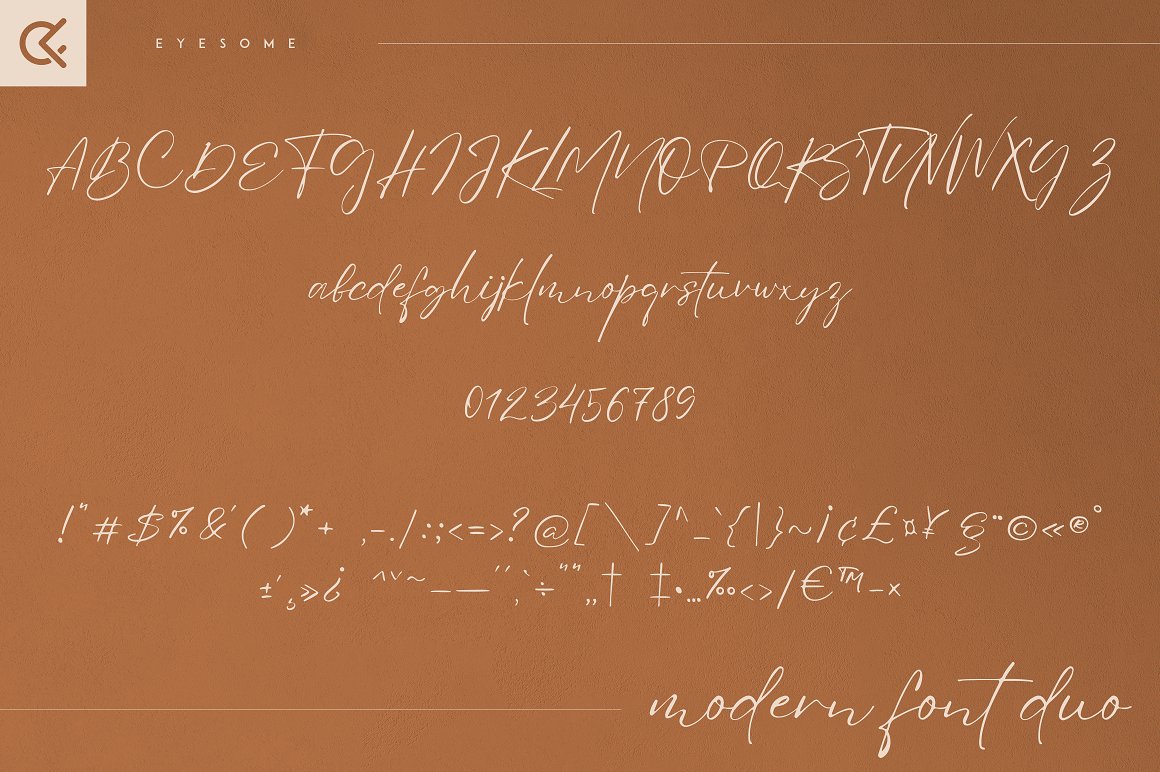 EYESOME
ABCDEFGHIJKLMNOPQRSTUVWXYZ
abcdefghijklmnopqrstuvwxyz
0123456789
!"#$%&'()*+,-./:;<=>?@[\]^_`{|}~¡¢£¤¥§¨©«®°
±´¸»¿ˆˇ˜–—‘’‚÷“”„†‡•…‰‹›⁄€™−×
modern font duo